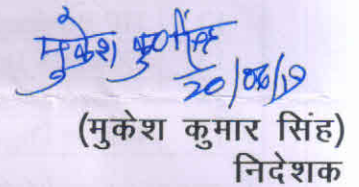 मुकेश कुमार
20/06/19
(मुकेश कुमार सिंह)
निदेशक